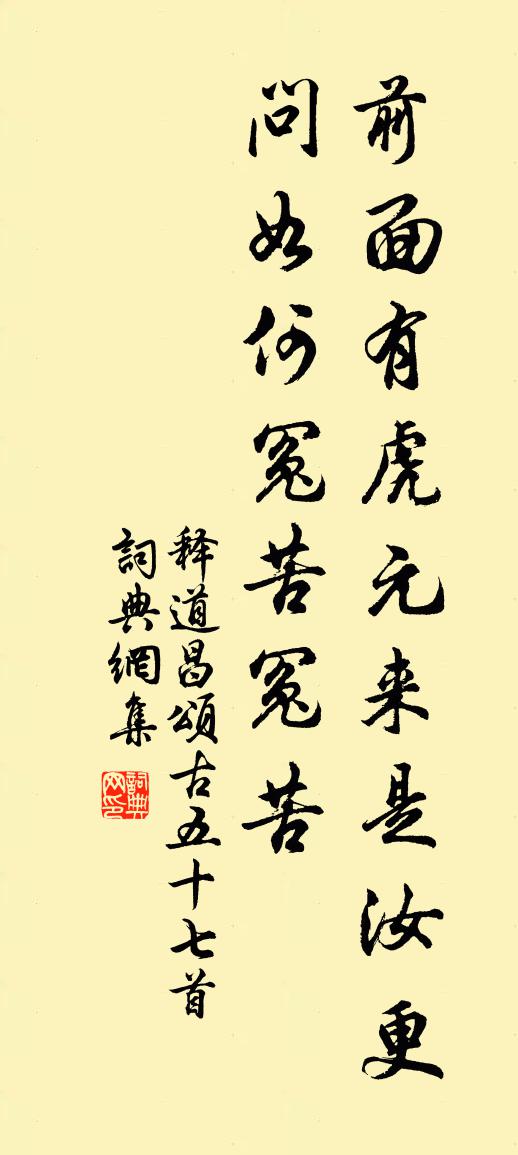 前面有虎元来是汝更
問如何冤苦冤苦
释道昌頌古五十七首
詞典網集
詞典网印